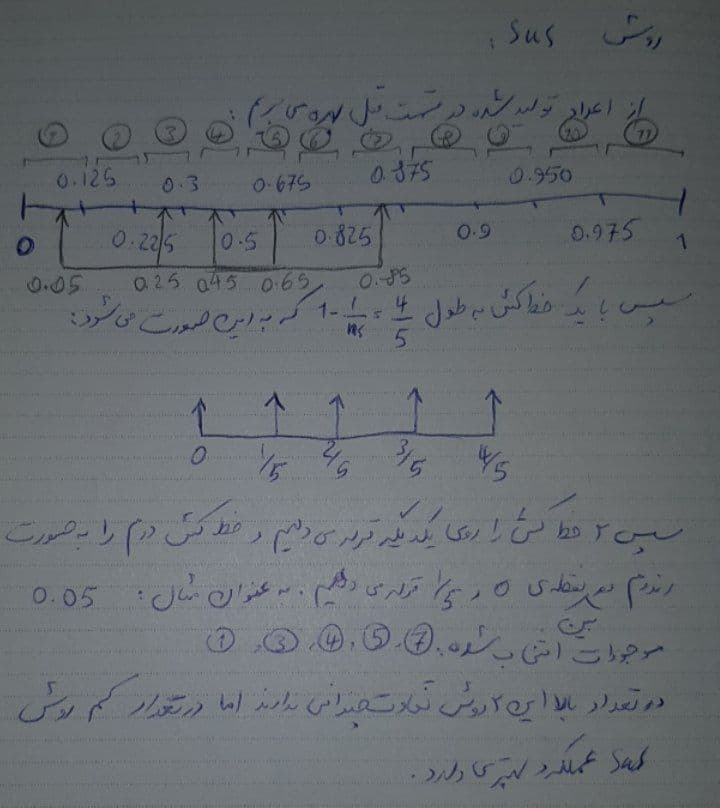 روش SUS:
از اعداد تولید شده در قسمت قبل بهره می بریم:
① ② ③ ④ ⑤ ⑥ ⑦ ⑧ ⑨ ⑩ ⑪
0.125 0.3 0.675 0.875 0.950
0 0.225 0.5 0.825 0.9 0.975 1
0.05 0.25 0.45 0.65 0.85
سپس با یک خط کش به طول 1-1/ns = 4/5 که به این صورت می شود:
0 1/5 2/5 3/5 4/5
سپس ۲ خط کش را روی یکدیگر قرار می دهیم و خط کش دوم را به صورت
رندم بین نقطه ی 0 و 1/5 قرار می دهیم. به عنوان مثال: 0.05
موجودات انتخاب شده: ⑦، ⑤، ④، ③، ①
در تعداد بالا این ۲ روش تفاوت چندانی ندارند اما در تعداد کم روش
SUS عملکرد بهتری دارد.